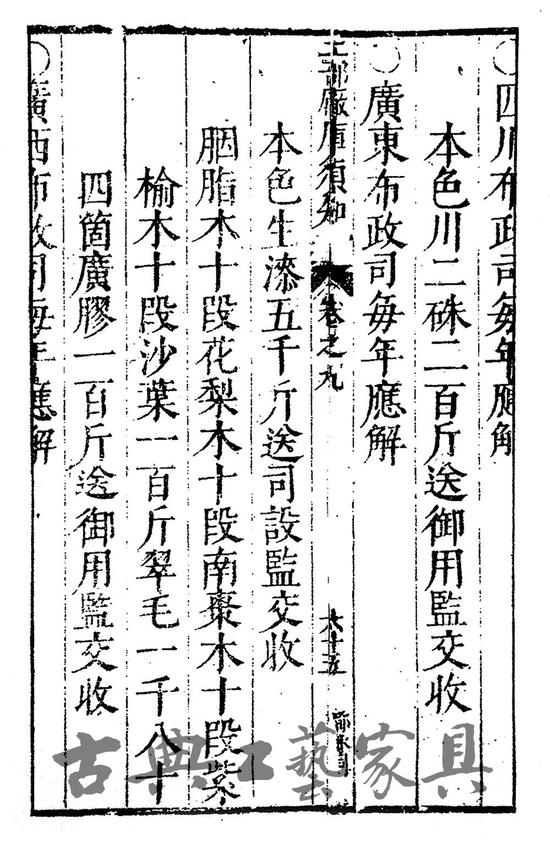 ○四川布政司每年應解
本色川二硃二百斤送御用監交收
○廣東布政司每年應解
工部廠庫須知 卷之九 六十五
本色生漆五千斤送司設監交收
胭脂木十段花梨木十段南棗木十段紫
榆木十段沙葉一百斤翠毛一千八十
四箇廣膠一百斤送御用監交收
○廣西布政司每年應解
古典工藝家具